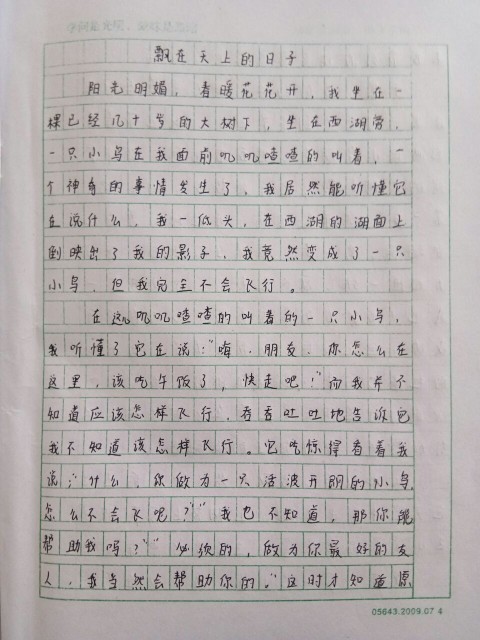 飘在天上的日子
阳光明媚，春暖花花开，我坐在一
棵已经几十岁的大树下，坐在西湖旁，
一只小鸟在我面前叽叽喳喳的叫着，一
个神奇的事情发生了，我居然能听懂它
在说什么，我一低头，在西湖的湖面上
倒映出了我的影子，我竟然变成了一只
小鸟，但我完全不会飞行。
在这叽叽喳喳的叫着的一只小鸟，
我听懂了它在说：“嗨，朋友，你怎么在
这里，该吃午饭了，快走吧！”而我并不
知道应该怎样飞行，吞吞吐吐地告诉它
我不知道该怎样飞行。它吃惊得看着我
说；“什么，你做为一只活波开朗的小鸟，
怎么不会飞呢？”“我也不知道，那你能
帮助我吗？”“必须的，做为你最好的友
人，我当然会帮助你的。”这时才知道原
05643.2009.07 4